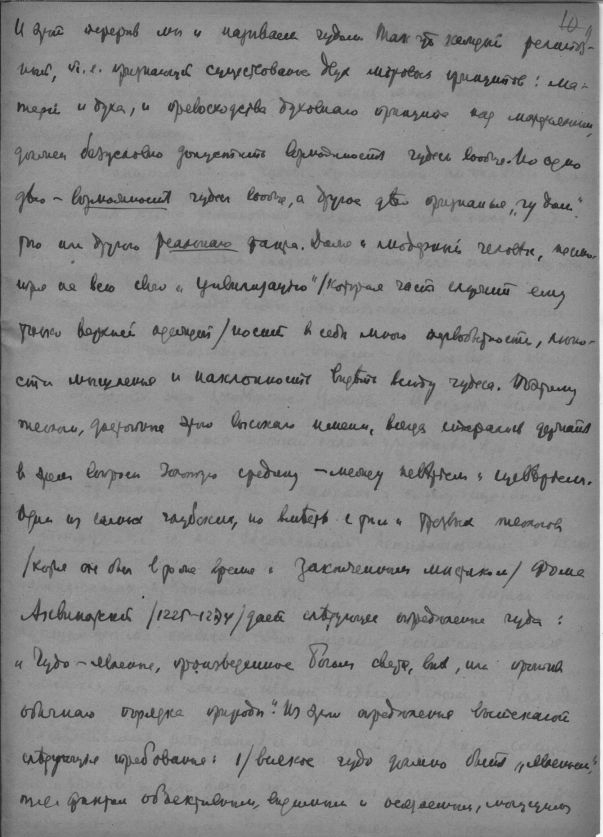 10
И этот перерыв мы и называем чудом. Так что каждый религиоз-
ный, т.е. признающий существование двух мировых принципов: ма-
терии и духа, и превосходства духовного принципа над материальным,
должен безусловно допустить возможность чудес вообще. Но одно
дѣло – возможность чудес вообще, а другое дѣло признание „чудом"
того или другого реального факта. Даже и современный человек, несмо-
тря на всю свою „цивилизацию" /которая часто служит ему
только верхней одеждой/ носит в себе много первобытности,
сти мышления и наклонность видѣть всюду чудеса. Поэтому
теологи, достойные этого высокого имени, всегда старались держаться
в этом вопросе золотую средину – между невѣрием и суевѣрием.
Один из самых глубоких, но вмѣстѣ с тем и трезвых теологов
/хотя он был в то же время и законченным мистиком/ Фома
Аквинарский /1225-1274/ дает слѣдующее определение чуда:
„Чудо – явление, произведенное Богом сверх, внѣ, или против
обычного порядка природы". Из этого определения вытекают
слѣдующие требования: 1/ всякое чудо должно быть „явлением",
т.е. фактом объективным, видимым и осязаемым, могущим